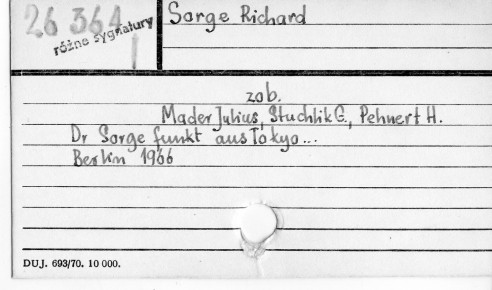 26 364
różne sygnatury
I
Sorge Richard
zob.
Mader Julius, Stuchlik G., Pehnert H.
Dr Sorge funkt aus Tokyo...
Berlin 1966
DUJ. 693/70. 10 000.